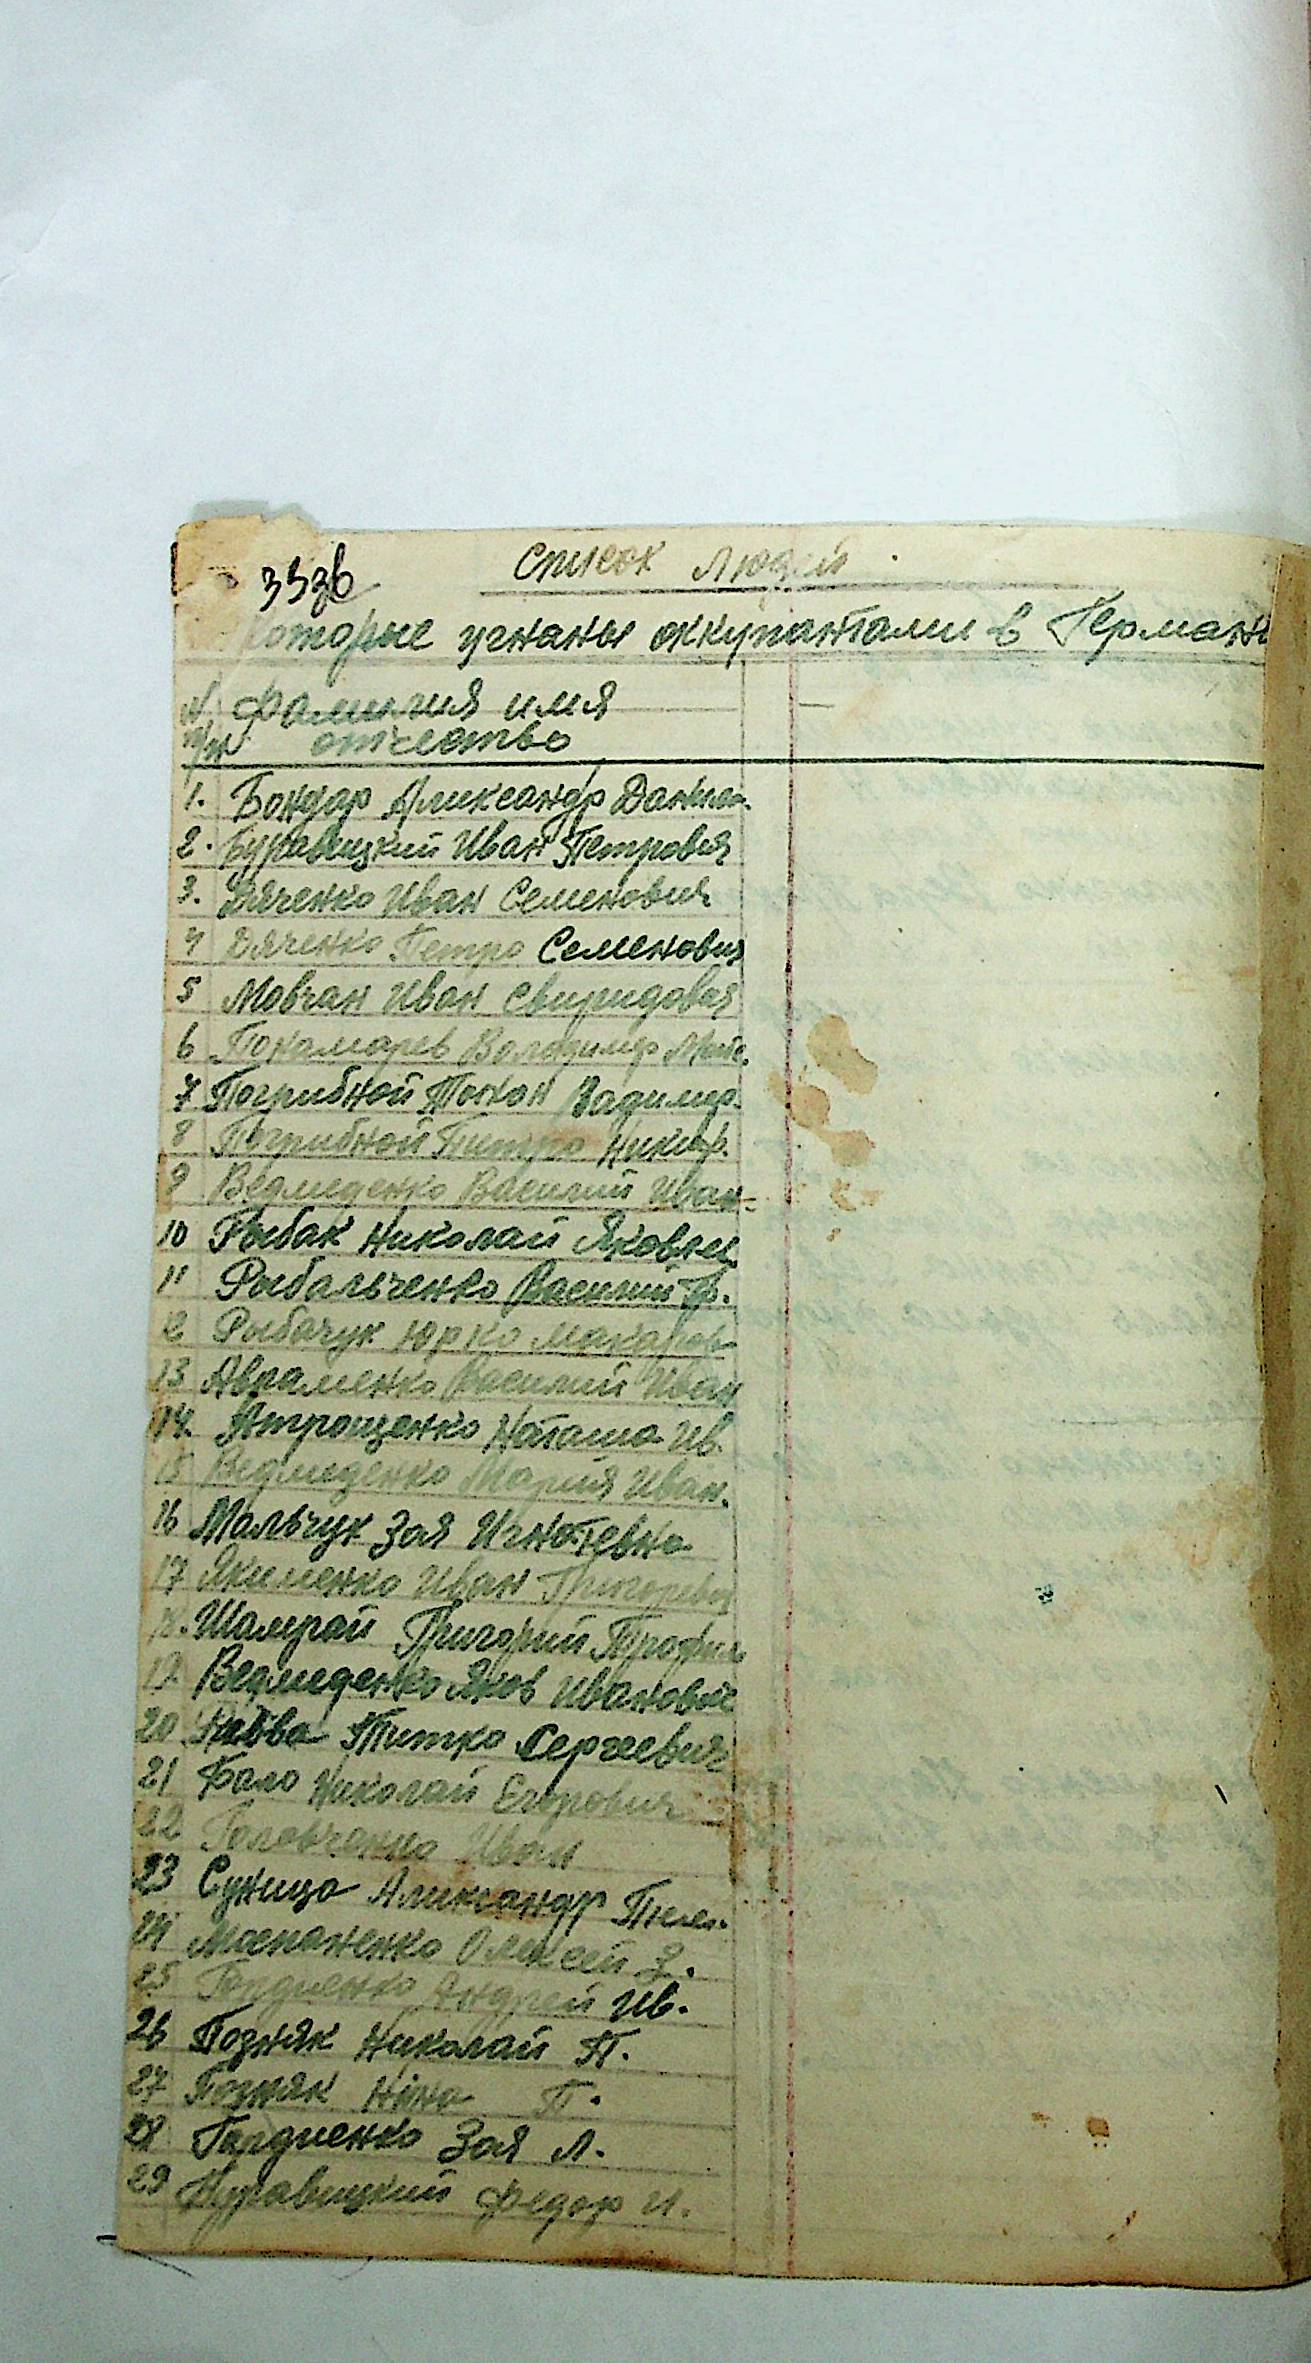 Список людей
которые угнаны оккупантами в Германи
N Фамилия имя
п/н отчество
1. Бондар Александр Данило.
2. Буравицкий Иван Петрович
3. Дяченко Иван Семенович
4 Дяченко Петро Семенович
5 Мовчан Иван Свиридович
6 Покаморев Володимер
7 Погрибной Тихон Вадимир.
8 Погрибной Питро Никиф.
9 Ведмеденко Василий Иван.
10 Рыбак Николай Яковлев
11 Рыбальченко Василий Ф.
12 Рыбачук Юрко Макаров
13 Авраменко Василий Иван
14. Атрощенко Наташа Ив.
15 Ведмеденко Мария Иван.
16 Мальчук Зоя Игнатевна
17 Якименко Иван Григоревич
18. Шамрай Григорий Трофим
19. Ведмеденко Яков Иванович
20 Титко Сергеевич
21 Бало Николай Егорович
22 Головченко Иван
23 Суница Александр Пил.
24 Маспаненко Олексей З.
25 Гордиенко Андрей Ив.
26 Позняк Николай П.
27 Позняк Нина П.
28 Гордиенко Зоя Л.
29 Журавицкий Федор И.